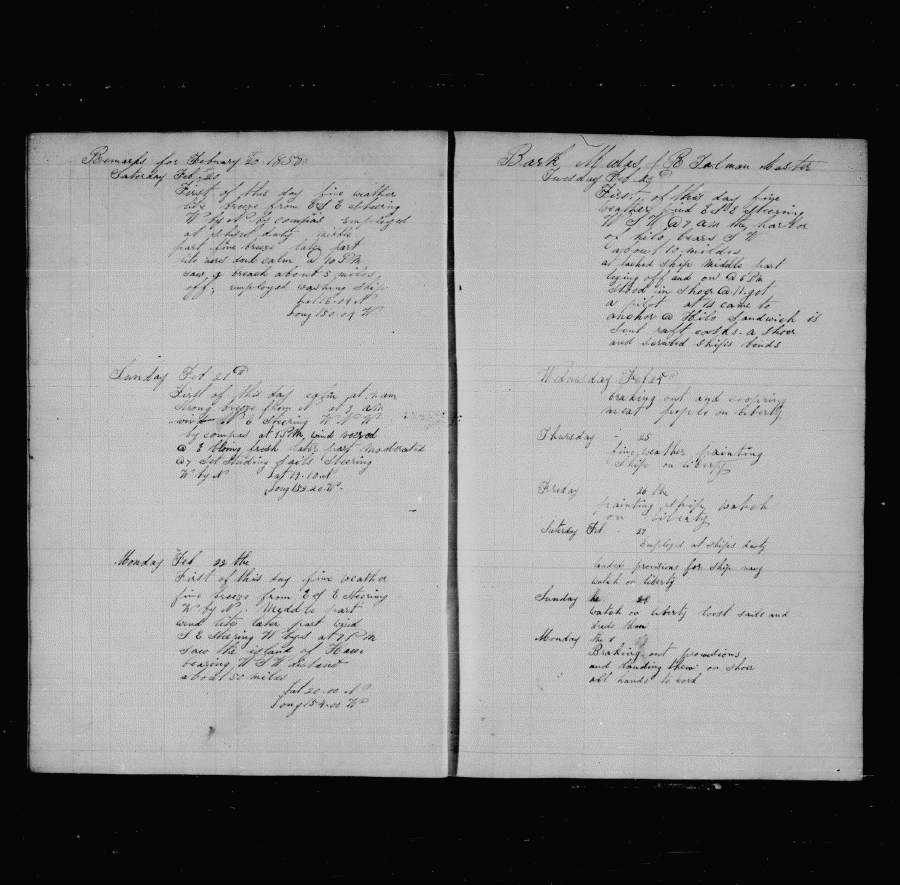 Remarks for Febuary 20 185
Saturday Feb 20
First of this day fine weather
lite breeze from E S E steering
W by N by compas Employed
at ships duty middle
part fine breeze later part
lite aers and calm @ 4 PM
saw a breach about 5 miles
off, employed washing ship
Lat 18.04 N
Long 150.04 W
Sunday Feb 21
First of this day calm at 2 am
strong breeze from at am
wind N E Steering W N W
by compas at PM wind
@ E blowing fresh later part moderated
@ 7 set studing sails Steering
W by N Lat 19.10 N
Long 152.20 W
Monday Feb 22 the
First of this day fine weather
fine breeze from E S E Steering
W by N Middle part
wind lite later part wind
S E Steering W by S at 7 PM
saw the island of
bearing W S W distant
about 50 miles
Lat 20.00 N
Long 154.00 W
Bark R Tallman Master
Tuesday Feb 23
First of this day fine
weather wind E S E Steering
W S W @ 7 am the harbor
of hilo bears S W
about 10 mildes
at tacked ship Middle part
lying off and on @ 5 PM
stood in shoer @ 11 got
a pilot at 12 came to
anchor @ Hilo Sandwich is
sent raft casks a shoer
and ships bends
Wednesday Feb 24
braking out and coopering
meat people on liberty
Thursday 25
fine weather painting
Ship on liberty
Friday 26 the
painting ship watch
on liberty
Saturday Feb 27
Employed at ships duty
landed provisions for ship
watch on liberty
Sunday 28
watch on liberty loost sails and
them
Monday the 1
Braking out provisions
and landing them on shoer
all hands to work